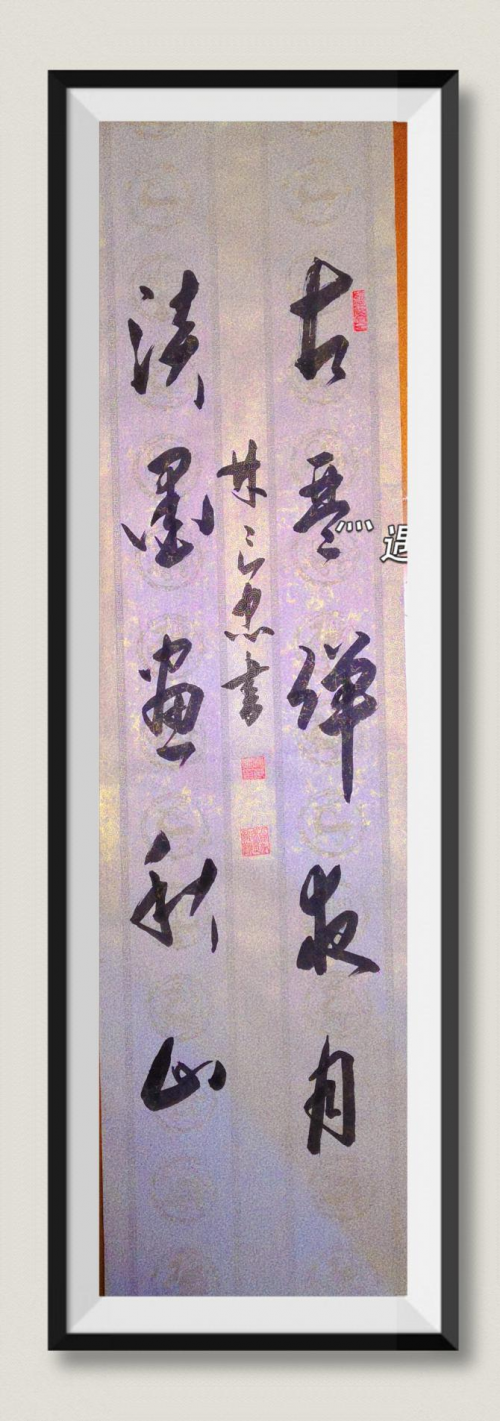 古琴弹夜月
渍墨画秋山
林 忠书
遇